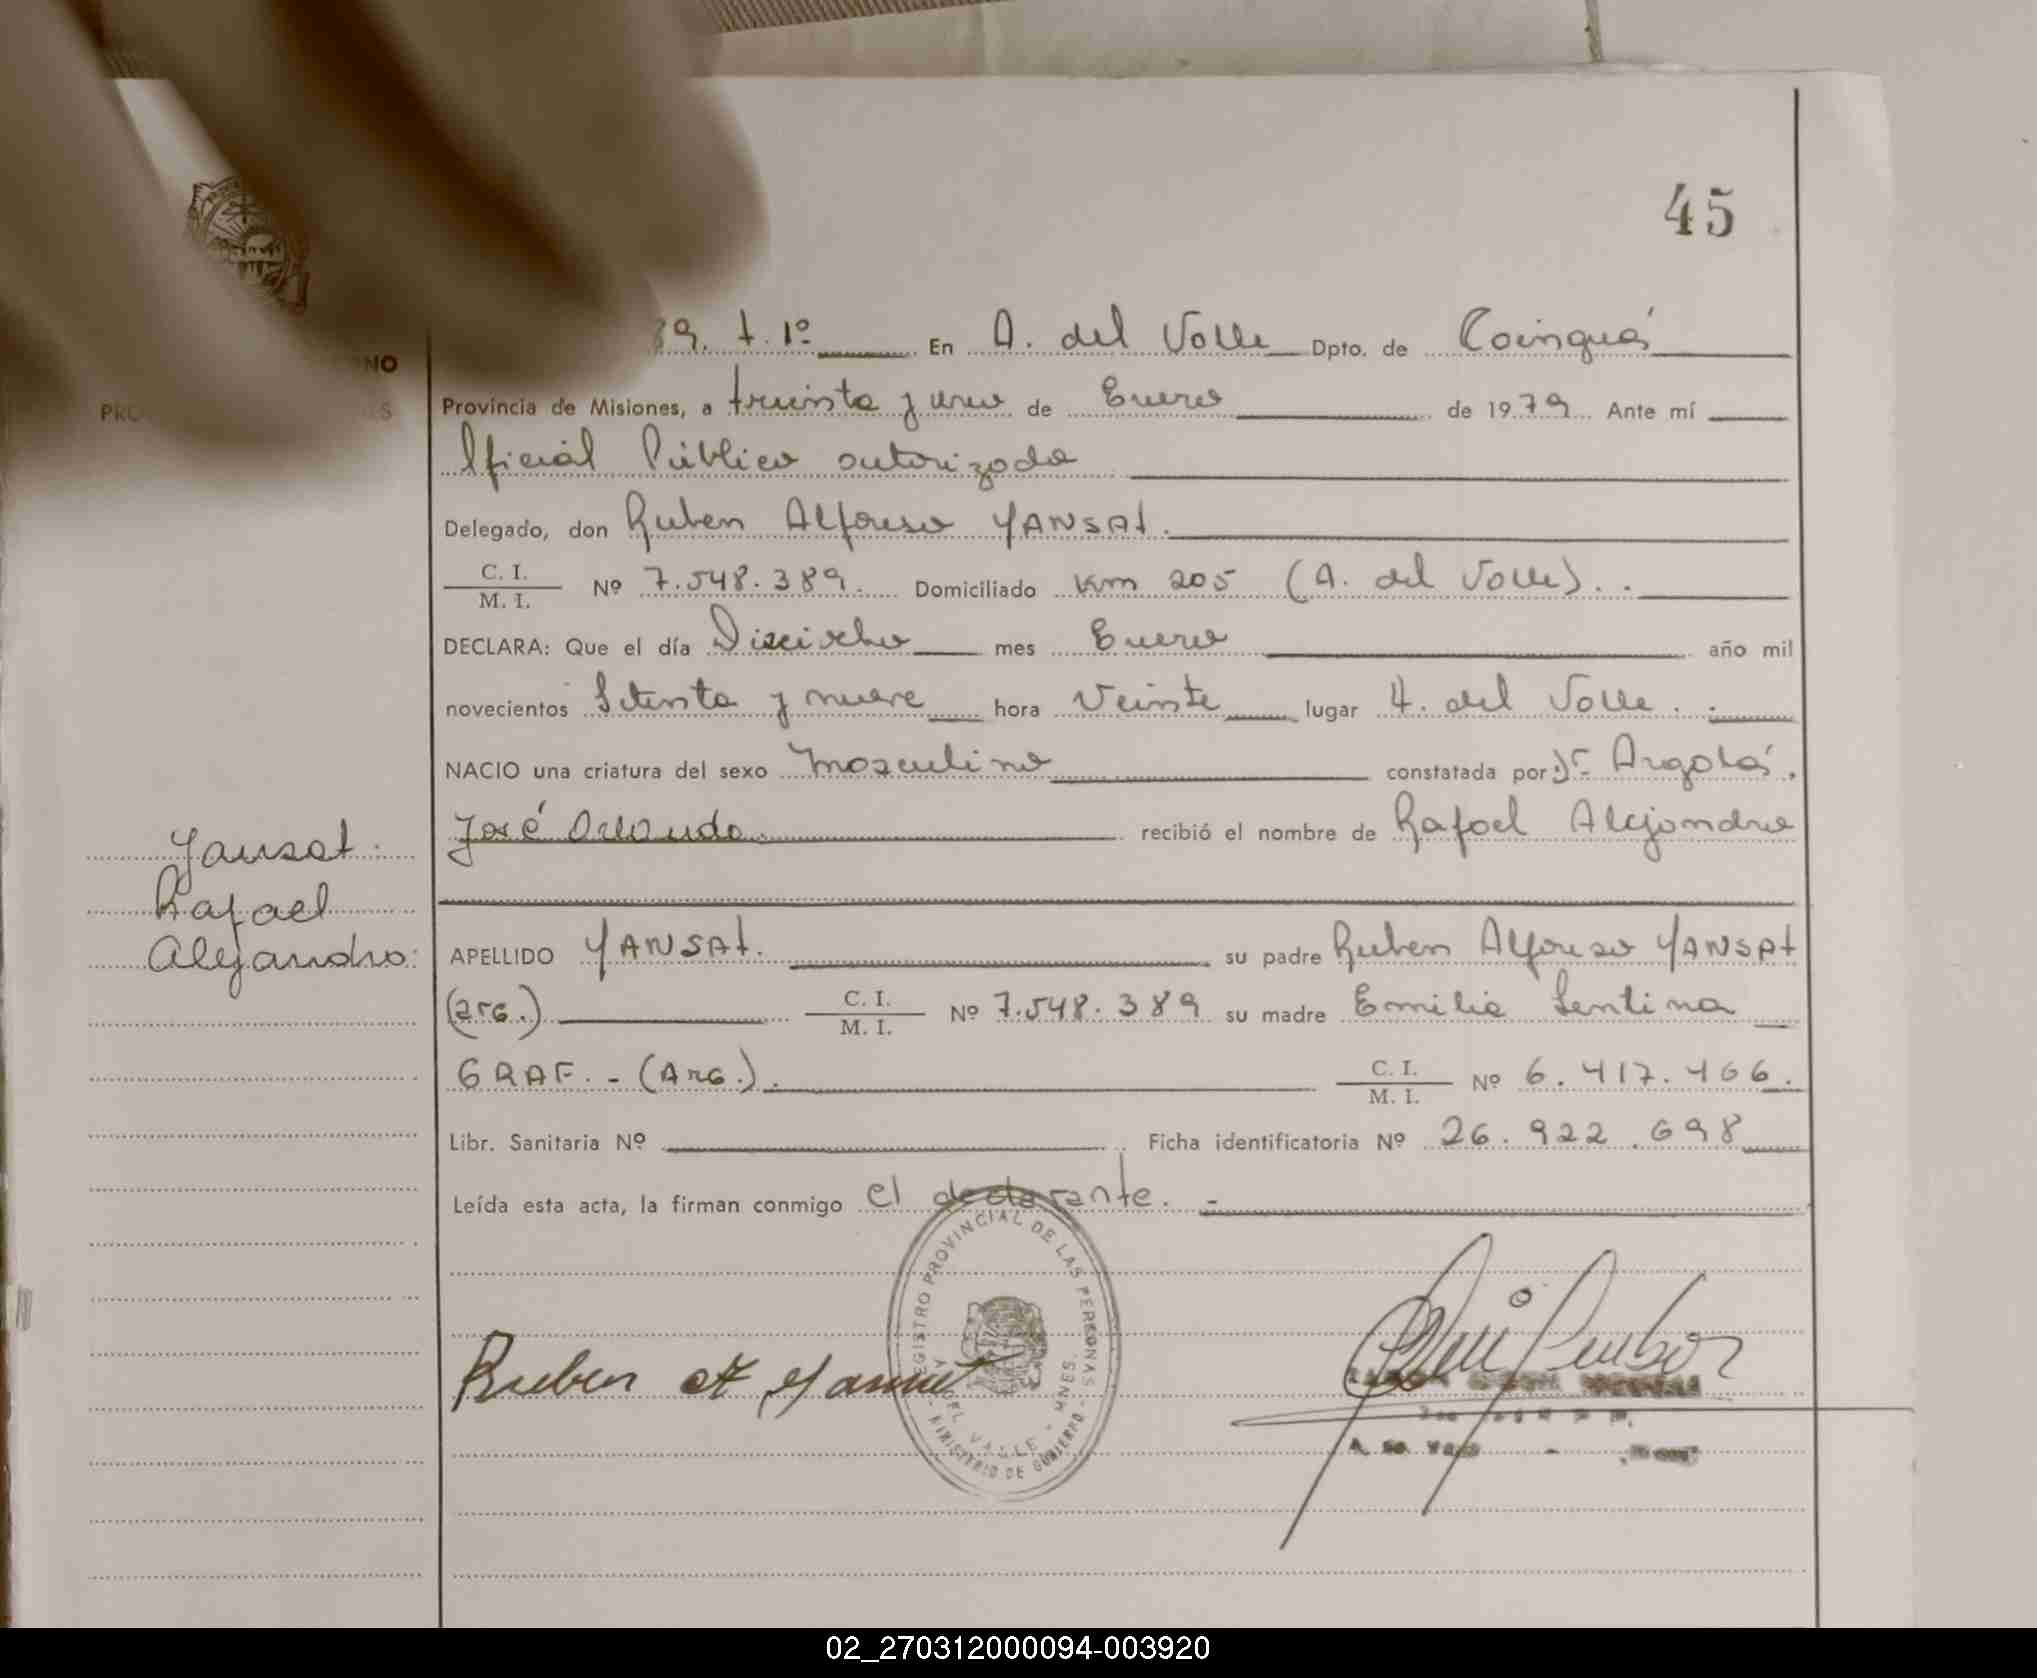 45
89. t. 1º En A. del Valle Dpto. de Cainguás
Provincia de Misiones, a treinta y uno de Enero de 1979 Ante mí
Oficial Público autorizado
Delegado, don Ruben Alfonso YANSAt.
C. I.
M. I. Nº 7.548.389. Domiciliado Km 205 (A. del Valle)..
DECLARA: Que el día Dieciocho mes Enero año mil
novecientos Setenta y nueve hora Veinte lugar A. del Valle.
NACIO una criatura del sexo masculino constatada por: Dr. Argolás.
José Orlando. recibió el nombre de Rafael Alejandro
Yansat.
Rafael
Alejandro:
APELLIDO YANSAt. su padre Ruben Alfonso YANSAt
(arg.) C. I.
M. I. Nº 7.548.389 su madre Emilia Sentina
GRAF. - (Arg.). C. I.
M. I. Nº 6.417.466.
Libr. Sanitaria Nº Ficha identificatoria Nº 26.922.698
Leída esta acta, la firman conmigo el declarante. -
REGISTRO PROVINCIAL DE LAS PERSONAS
A. DEL VALLE - MNES.
MINISTERIO DE GOBIERNO
Ruben A Yansat
02_270312000094-003920